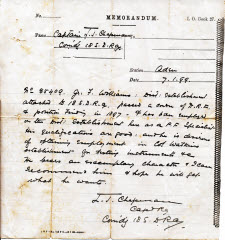 MEMORANDUM.
From Captain L. J. Chapman,
Comdg 18 S. D. R.A.
Station Aden
7.1.99.
No 85409 Gr. F. Williams District Establishment
attached 18 S.D.R.A. passed a course of D.R.F.
& position finding in 1897, & has been employed
on the Dist. Establishment here as a P.F. Specialist
His qualifications are good: and he is desirous
of obtaining employment in Col Watkins
establishment for testing instruments
He bears an exemplary character & I can
recommend him & hope he will get
what he wants.
L. J. Chapman
Capt R.A.
Comdg 18 S D R A